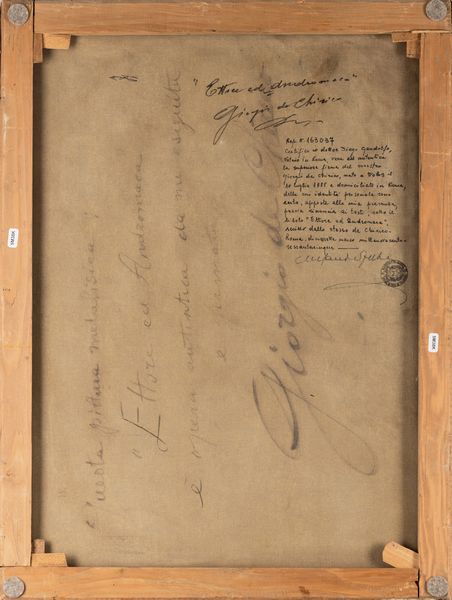 "Ettore ed Andromaca"
Giorgio de Chirico
Rep. N. 163037
Certifico io dottor Diego Gandolfo,
Notaio in Roma, vera ed autentica
la superiore firma del maestro
Giorgio de Chirico, nato a Volos il
10 luglio 1888 e domiciliato in Roma,
della cui identità personale sono
certo, apposta alla mia presenza,
previa rinunzia ai testi, sotto il
titolo "Ettore ed Andromaca",
scritto dallo stesso de Chirico.
Roma,
questa pittura metafisica:
"Ettore ed Andromaca"
è opera autentica da me eseguita
e firmata
Giorgio de